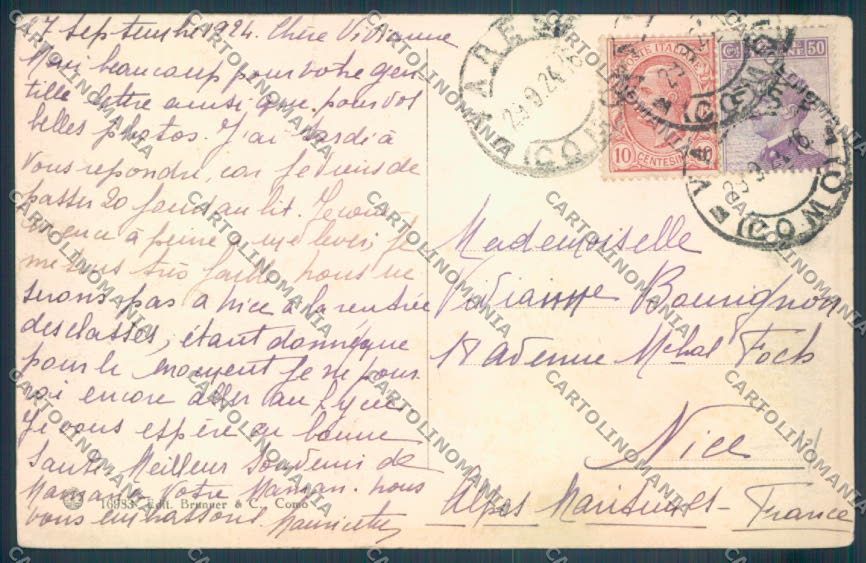 27 Septembre 1924. Chère Vivianne
Merci beaucoup pour votre gen
tille lettre ainsi que pour vos
belles photos. J'ai tardé à
vous repondre, car je viens de
passer 20 jours au lit. Je com
mence à peine a me lever, je
me sens très faible, nous ne
serons pas à Nice à la rentrée
des classes, étant donné que
pour le moment je ne pour
rai encore aller au Lycée.
Je vous espère en bonne
Santé Meilleur Souvenir de
Maman à Votre Maman. nous
vous embrassons
16933 - Edit. Brunner & C., Como
Mademoiselle
Vivianne Bourignon
18 avenue Mchal Foch
Nice
Alpes Maritimes - France
POSTE ITALIANE
10 CENTESIMI 10
50
VARENNA
(COMO)
23.9.24.16
CARTOLINOMANIA